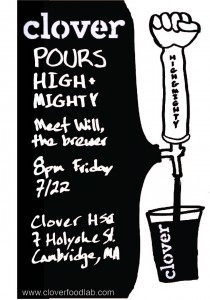 clover
POURS
HIGH +
MIGHTY
Meet Will,
the brewer
8pm Friday
7/22
Clover HSQ
7 Holyoke St.
Cambridge, MA
www.cloverfoodlab.com
HIGH&MIGHTY
clover